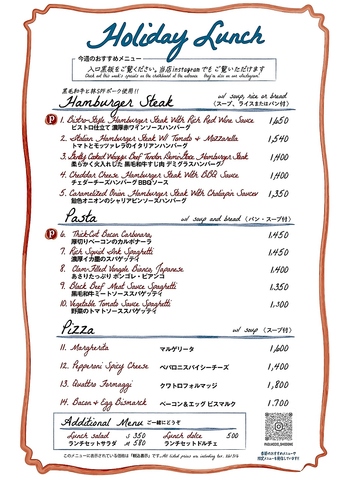 Holiday Lunch
今週のおすすめメニュー
入口黒板をご覧ください。当店instagramでもご覧いただけます
Check out this week's specials on the chalkboard at the entrance. They're also on our instagram!
黒毛和牛と林SPFポーク使用!!
Hamburger Steak w/ soup, rice or bread
(スープ、ライスまたはパン付)
P 1. Bistro-Style Hamburger Steak With Rich Red Wine Sauce 1,650
ビストロ仕立て 濃厚赤ワインソースハンバーグ
2. Italian Hamburger Steak W/ Tomato & Mozzarella 1,540
トマトとモッツァレラのイタリアンハンバーグ
3. Slowly Cooked Wagyu Beef Tendon Demi-Glace Hamburger Steak 1,400
柔らかく火入れした 黒毛和牛すじ肉 デミグラスハンバーグ
4. Cheddar Cheese Hamburger Steak With BBQ Sauce 1,400
チェダーチーズハンバーグ BBQソース
5. Caramelized Onion Hamburger Steak With Chaliapin Sauce 1,350
飴色オニオンのシャリアピンソースハンバーグ
Pasta w/ soup and bread (パン・スープ付)
P 6. Thick-Cut Bacon Carbonara 1,450
厚切りベーコンのカルボナーラ
7. Rich Squid Ink Spaghetti 1,450
濃厚イカ墨のスパゲッティ
8. Clam-Filled Vongole Bianco, Japanese 1,400
あさりたっぷり ボンゴレ・ビアンコ
9. Black Beef Meat Sauce Spaghetti 1,350
黒毛和牛ミートソーススパゲッティ
10. Vegetable Tomato Sauce Spaghetti 1,300
野菜のトマトソーススパゲッティ
Pizza w/ soup (スープ付)
11. Margherita マルゲリータ 1,600
12. Pepperoni Spicy Cheese ペパロニスパイシーチーズ 1,400
13. Quattro Formaggi クワトロフォルマッジ 1,800
14. Bacon & Egg Bismarck ベーコン&エッグ ビスマルク 1,700
Additional Menu ご一緒にどうぞ
Lunch salad S 350 Lunch dolce 500
ランチセットサラダ M 580 ランチセットドルチェ
このメニューに表示されている価格は「税込表示」です。All listed prices are including tax.